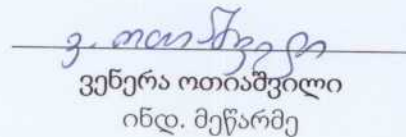 ვ. ოთიაშვილი
ვენერა ოთიაშვილი
ინდ. მეწარმე